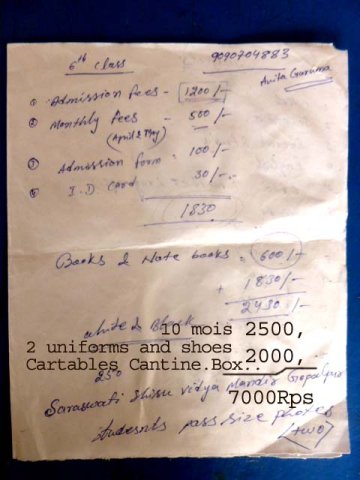 6th Class
9090704883
Anita Guruma
① Admission fees - 1200/-
② Monthly fees - 500/-
(April & May)
③ Admission form - 100/-
④ I.D Card - 30/-
1830
Books & Note books = 600/-
+ 1830/-
2430/-
white & Black
10 mois 2500,
2 uniforms and shoes
Cartables Cantine.Box.. 2000,
250
7000Rps
Saraswati Shisu Vidya Mandir Gopalpur
students pass size photos
(two)